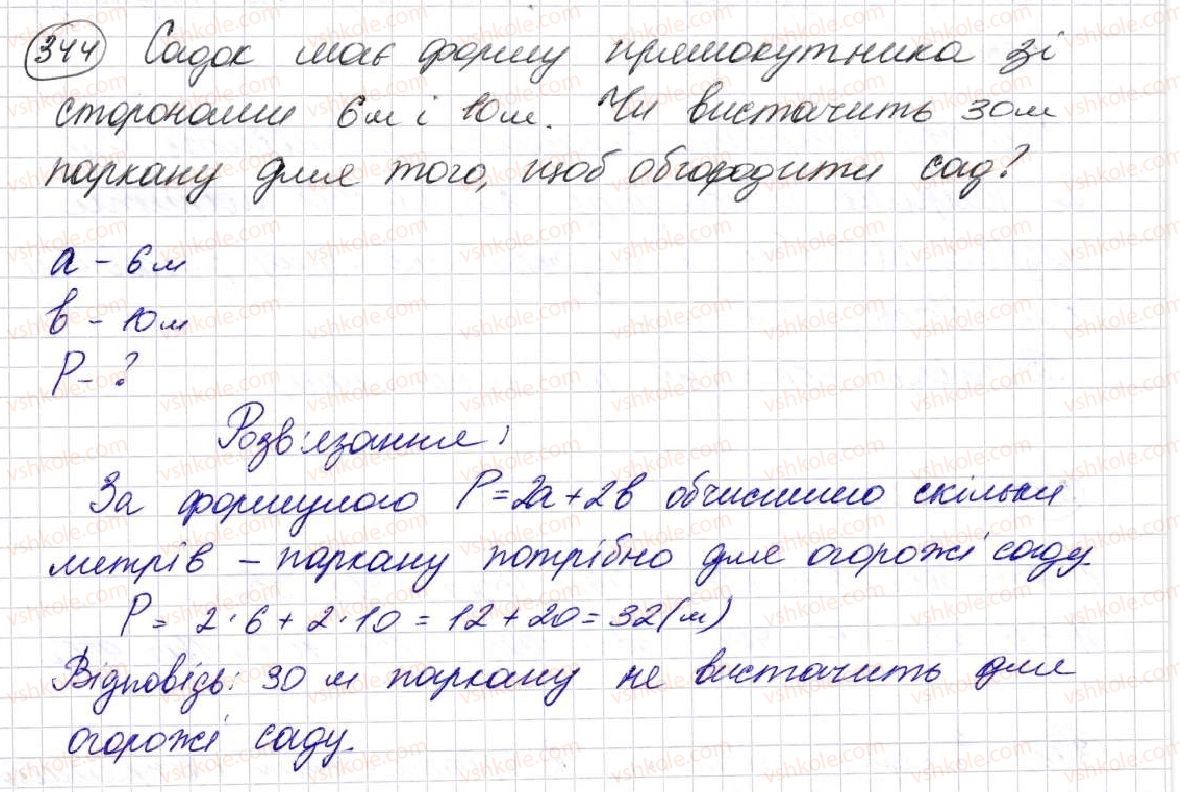 344 Садок має форму прямокутника зі
сторонами 6м і 10м. Чи вистачить 30м
паркану для того, щоб обгородити сад?
a - 6м
b - 10м
P - ?
Розв'язання:
За формулою P = 2a + 2b обчислимо скільки
метрів - паркану потрібно для огорожі саду.
P = 2·6 + 2·10 = 12 + 20 = 32 (м)
Відповідь: 30 м паркану не вистачить для
огорожі саду.